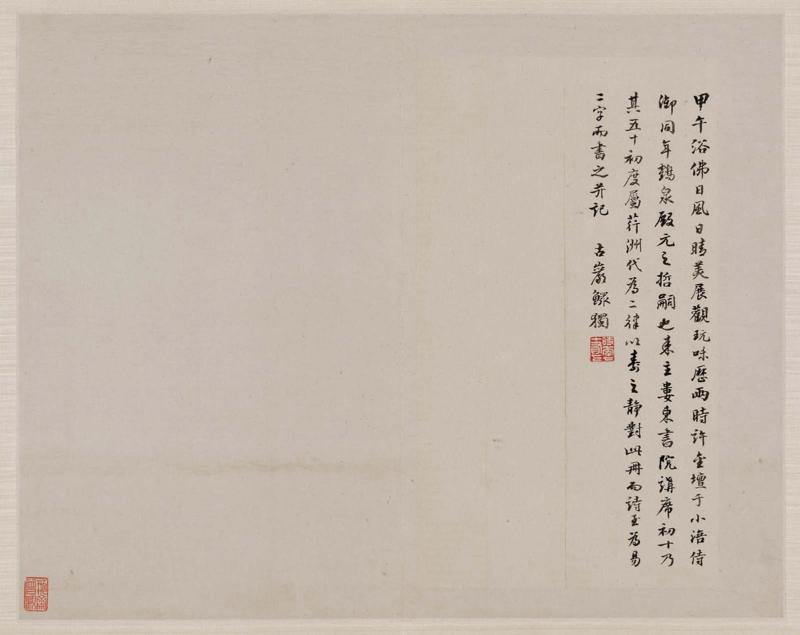 甲午浴佛日風日晴美展觀玩味歷兩時許金壇于小浯侍
御同年鶴泉殿元之哲嗣也來主婁東書院講席初十乃
其五十初度屬荇洲代為二律以壽之靜對此冊而詩至為易
二字而書之并記 古巖鰥獨